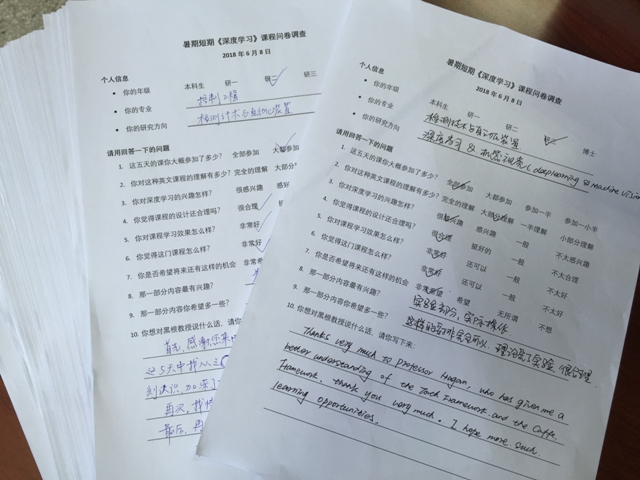 暑期短期《深度学习》课程问卷调查
2018 年 6 月 8 日
个人信息
• 你的年级 本科生 研一 研二 研三
• 你的专业 控制工程
• 你的研究方向 检测技术与自动化装置
请用回答一下的问题
1. 这五天的课你大概参加了多少? 全部参加 大都参
2. 你对这种英文课程的理解有多少? 完全的理解 大部分
3. 你对深度学习的兴趣怎样? 很感兴趣 感好
4. 你觉得课程的设计还合理吗? 很合理
5. 你对课程学习效果怎么样? 非常好
6. 你觉得这门课程怎么样? 非常好
7. 你是否希望将来还有这样的机会 非常希
8. 那一部分内容最有兴趣?
9. 那一部分内容你希望多一些?
10. 你想对黑根教授说什么话, 请你
首先, 感谢您来
这5天中
到达识, 加深了
再次, 我
最后, 再
暑期短期《深度学习》课程问卷调查
2018 年 6 月 8 日
个人信息
• 你的年级 本科生 研一 研二 研三 博士
• 你的专业 检测技术与自动化装置
• 你的研究方向 深度学习 & 机器视觉 (deep learning & machine vision
请用回答一下的问题
1. 这五天的课你大概参加了多少? 全部参加 大都参加 参加一半 参加一小半
2. 你对这种英文课程的理解有多少? 完全的理解 大部分理解 一半理解 小部分理解
3. 你对深度学习的兴趣怎样? 很感兴趣 感兴趣 一般 不太感兴趣
4. 你觉得课程的设计还合理吗? 很合理 挺好的 一般 不太合理
5. 你对课程学习效果怎么样? 非常好 还可以 一般 不太好
6. 你觉得这门课程怎么样? 非常好 还可以 一般 不太好
7. 你是否希望将来还有这样的机会 非常希望 希望 无所谓 不想
8. 那一部分内容最有兴趣? 实验部分, 实际操作
9. 那一部分内容你希望多一些? 这样的安排完全可以, 理论完了实验, 很合理.
10. 你想对黑根教授说什么话, 请你写下来:
Thanks very much to Professor Hagan, who has given me a
better understanding of the Torch framework and the Caffe
framework. thank you very much. I hope more such
learning opportunities.